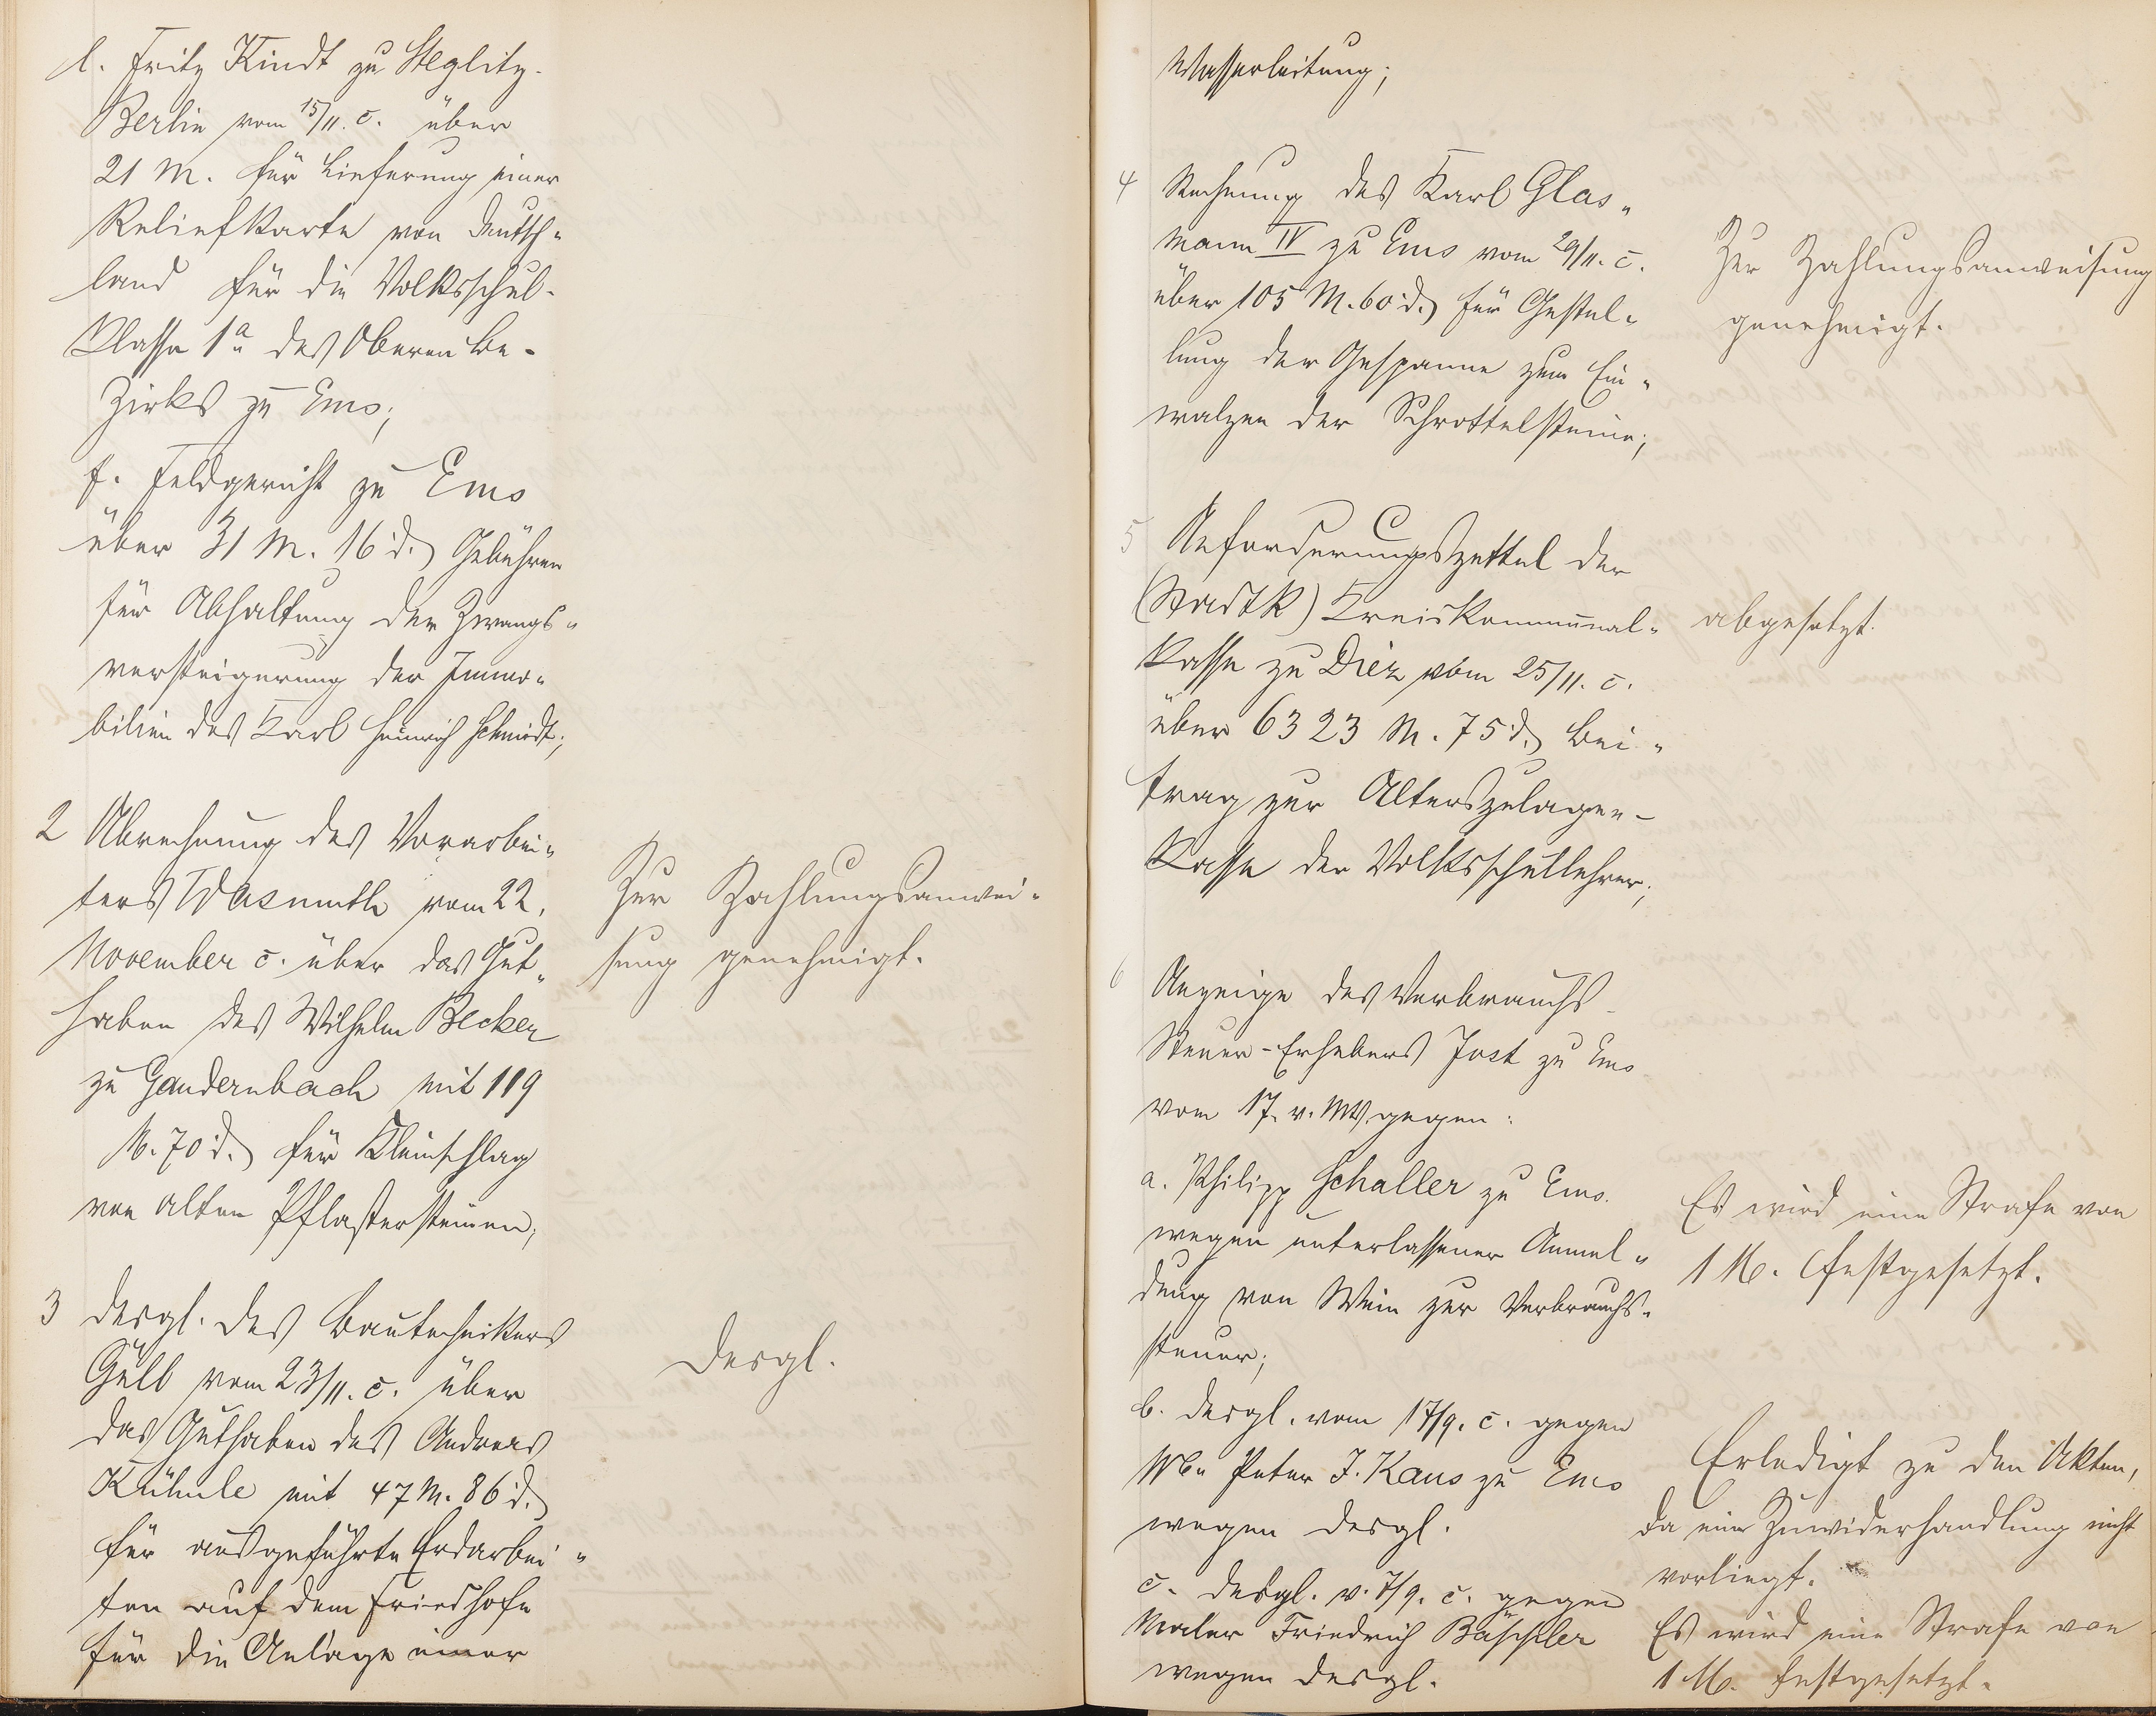 l. Fritz Kindt zu Steglitz-
Berlin vom 15/11. c. über
21 M. für Lieferung einer
Reliefkarte von Deutsch-
land für die Volksschul-
klasse 1a des Oberen Be-
zirks zu Ems;
f. Feldgericht zu Ems
über 31 M. 16 d. Gebühren
für Abhaltung der Zwangs-
versteigerung der Immo-
bilien des Karl Heinrich Schmidt;
2 Abrechnung des Vorarbei-
ters Wasmuth vom 22.
November c. über das Gut-
haben des Wilhelm Becker
zu Gaudernbach mit 119
M. 70 d. für Kleinschlag
von alten Pflastersteinen;
Zur Zahlungsanwei-
sung genehmigt.
3 desgl. des Bautechnikers
Güll vom 23/11. c. über
das Guthaben des Andreas
Kühnle mit 47 M. 86 d.
für ausgeführte Erdarbei-
ten auf dem Friedhofe
für die Anlage einer
desgl.
Wasserleitung;
4 Rechnung des Karl Glas-
mann IV zu Ems vom 29/11. c.
über 105 M. 60 d. für Gestel-
lung der Gespanne zum Ein-
walzen der Schrottelsteine;
Zur Zahlungsanweisung
genehmigt.
5 Anforderungszettel der
(Stadtk) Kreiskommunal-
kasse zu Diez vom 25/11. c.
über 6323 M. 75 d. Bei-
trag zur Alterszulagen-
kasse der Volksschullehrer;
abgesetzt.
6 Anzeige des Verbrauchs-
steuer-Erhebers Jost zu Ems
vom 17. v. Mts. gegen:
a. Philipp Schaller zu Ems.
wegen unterlassener Anmel-
dung von Wein zur Verbrauchs-
steuer;
Es wird eine Strafe von
1 M. festgesetzt.
b. desgl. vom 17/9. c. gegen
Peter J. Kaus zu Ems
wegen desgl.
Erledigt zu den Akten,
da eine Zuwiderhandlung nicht
vorliegt.
c. desgl. v. 7/9. c. gegen
Maler Friedrich Bäppler
wegen desgl.
Es wird eine Strafe von
1 M. festgesetzt.